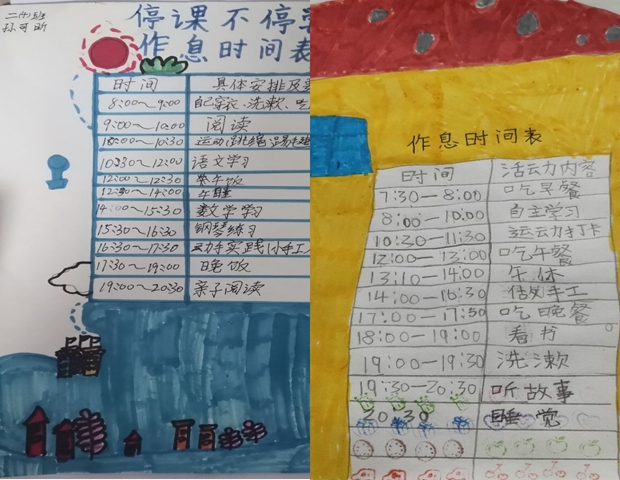 二(4)班
停课不停
作息时间表
时间 具体安排及
8:00~9:00 自己穿衣、洗漱、吃
9:00~10:00 阅读
10:00~10:30 运动(跳绳、
10:30~12:00 语文学习
12:00~12:30 吃午饭
12:30~14:00 午睡
14:00~15:30 数学学习
15:30~16:30 钢琴练习
16:30~17:30 动手实践(小手工
17:30~19:00 晚饭
19:00~20:30 亲子阅读
作息时间表
时间 活动内容
7:30—8:00 吃早餐
8:00—10:00 自主学习
10:30—11:30 运动打卡
12:00—13:00 吃午餐
13:10—14:00 午休
14:00—16:30 做手工
17:00—17:50 吃晚餐
18:00—19:00 看书
19:00—19:30 洗漱
19:30—20:30 听故事
20:30 睡觉